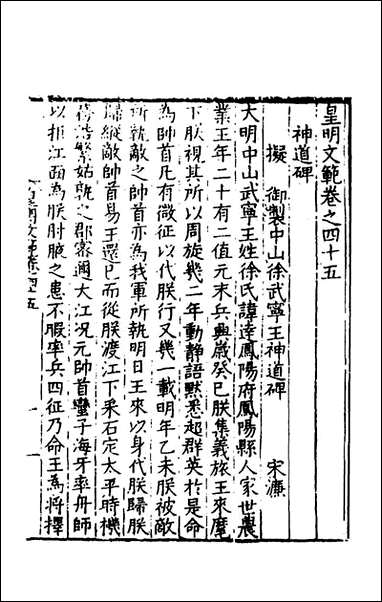 皇明文範卷之四十五
神道碑
擬　御製中山徐武寧王神道碑　宋濂
大明中山武寧王姓徐氏諱達鳳陽府鳳陽縣人家世農
業王年二十有二值元末兵興歲癸巳朕集義旅王來麾
下朕視其所以周旋幾二年動靜語默悉超群英於是命
為帥首凡有微征以代朕行又幾一載明年乙未朕被敵
所執敵之帥首亦為我軍所執明日王來以身代朕歸朕
歸縱敵帥首易王還已而從朕渡江下采石定太平時機
務浩繁姑孰之郡密邇大江況元帥首蠻子海牙率舟師
以拒江面為朕肘腋之患不暇率兵四征乃命王為將擇
皇明文範卷之四五
一